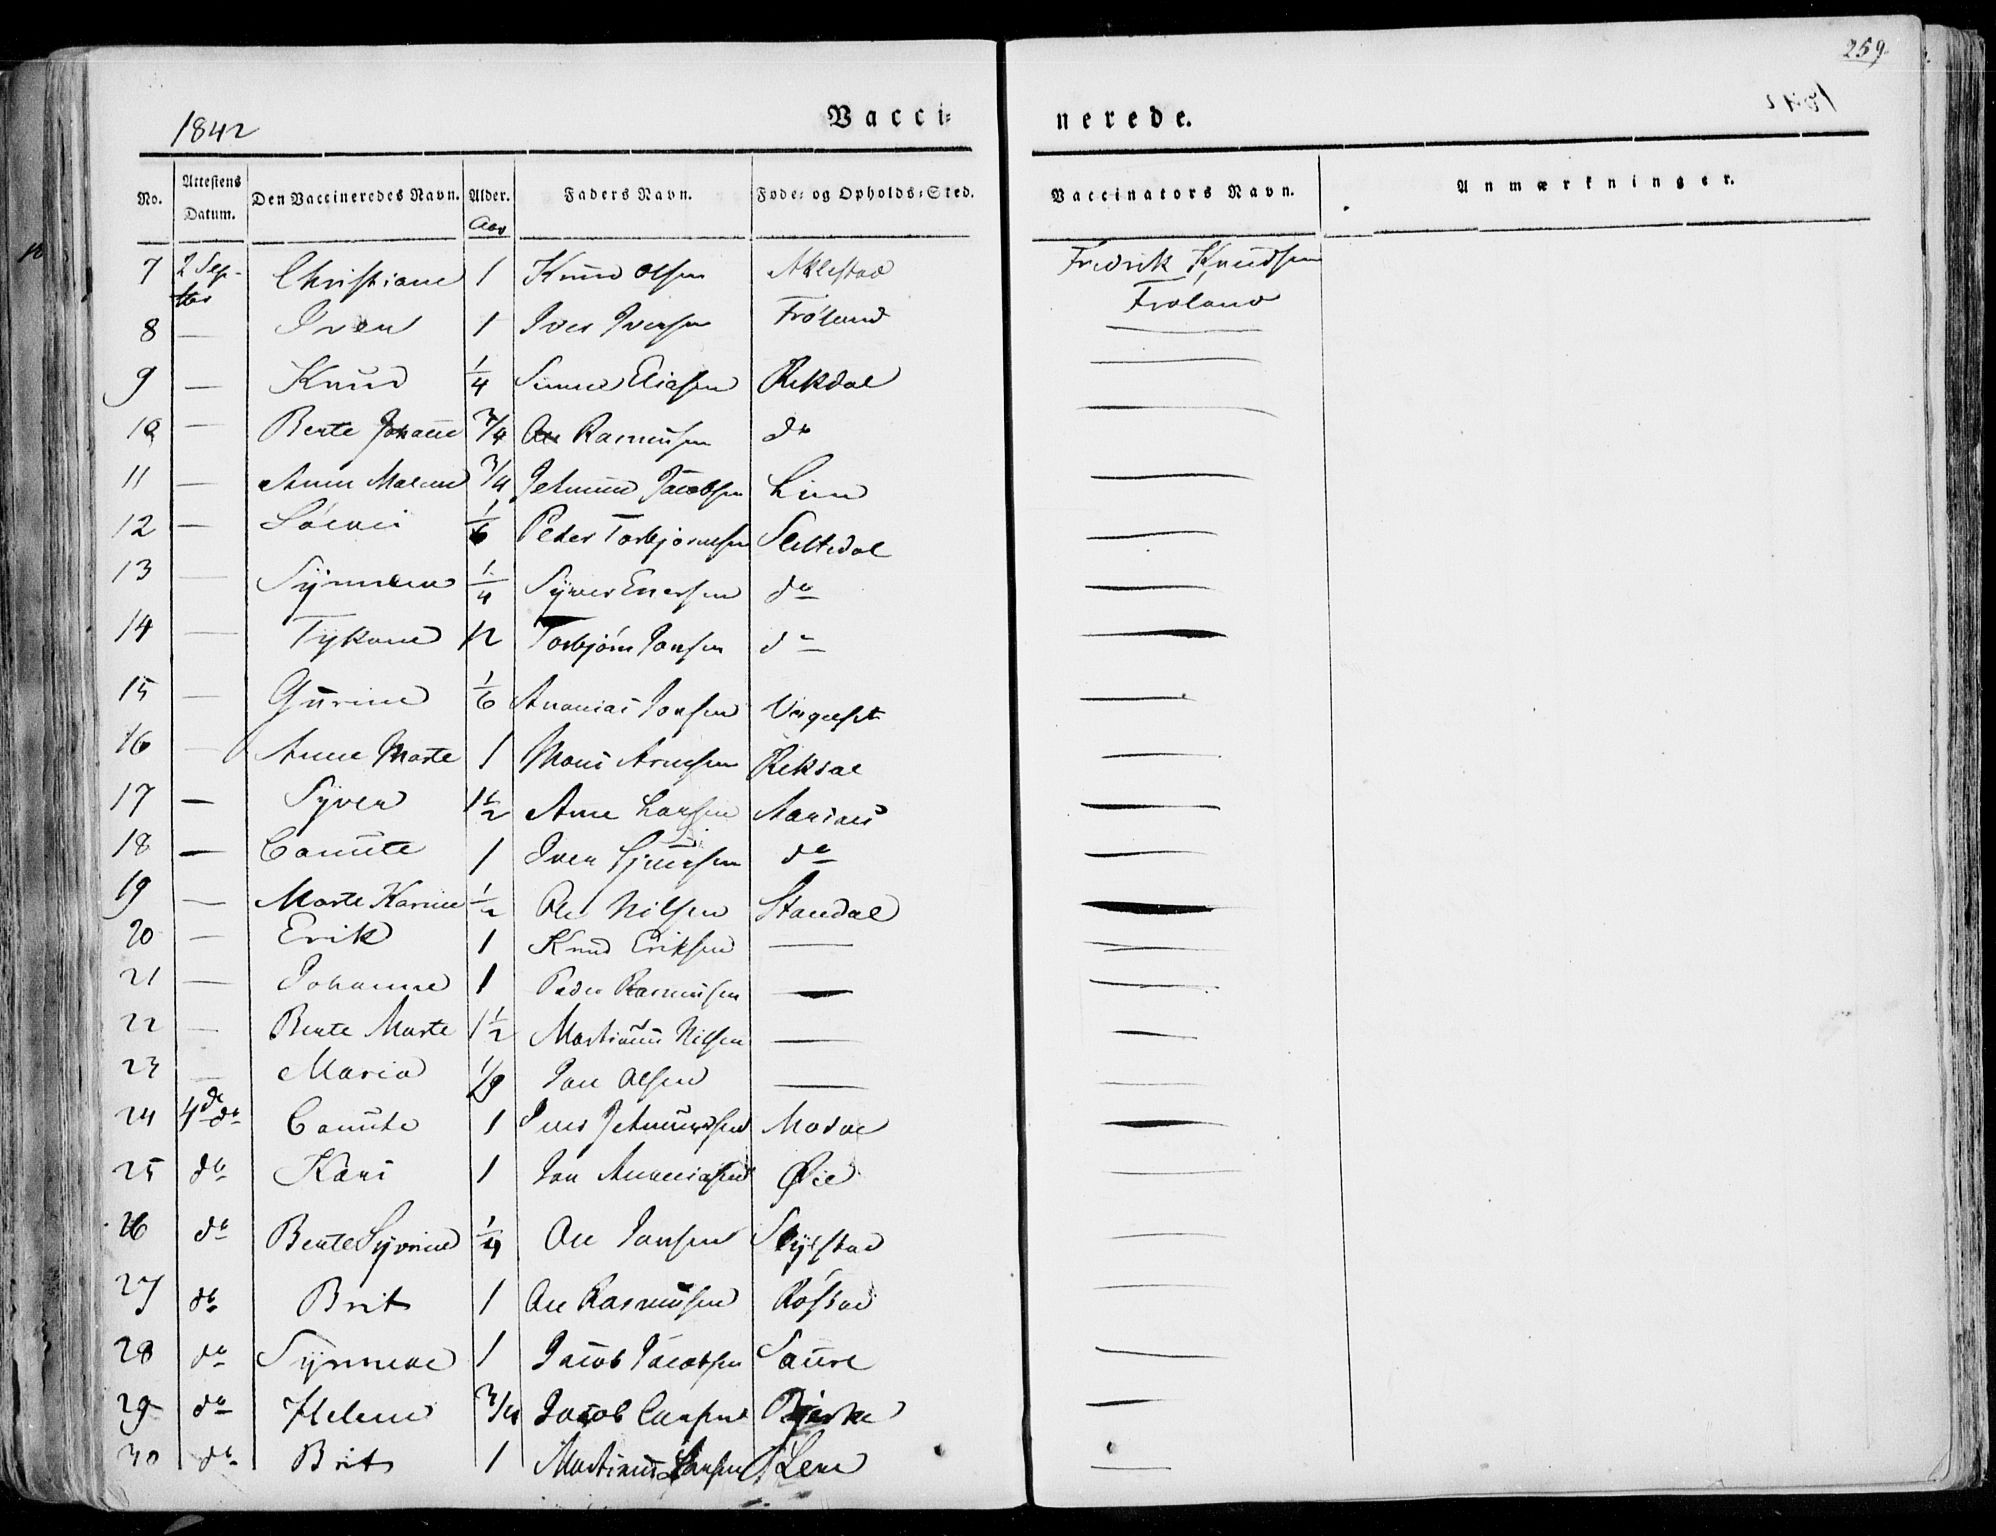 259
1842
Vacci-
nerede.
No. Attestens Datum. Den Vaccineredes Navn. Alder. Faders Navn. Føde- og Opholds-Sted. Vaccinators Navn. Anmærkninger.
Aar
7 2 Sep-tbr Christiane 1 Knud Olsen Aklestad Fredrik Knudsen Frøland
8 — Iver 1 Iver Iversen Frøland —
9 — Knud 1/4 Eliasen Rekdal —
10 — Berte Johanne 3/4 Ole Rasmusen do —
11 — Anne Maren 3/4 Jetmund Jacobsen Lien —
12 — 1/6 Peder Torbjørnsen —
13 — Synneve 1/4 Syver do —
14 — 12 Torbjørn Jonsen do —
15 — Gurine 1/6 Ananias Jonsen —
16 — Anne Marte 1 Mons Arnesen Rekdal —
17 — Syver 1 1/2 Arne Larsen —
18 — Canute 1 Iver Sjursen do —
19 — Marte Karine 1/2 Ole Nilsen Standal —
20 — Erik 1 Knud Eriksen — —
21 — Johanne 1 Peder Rasmusen — —
22 — Berte Marte 1 1/2 Martinus Nilsen — —
23 — Maria Jon Olsen — —
24 4 de do Canute 1 Iver Jetmundsen —
25 do Kari 1 Jon Ananiasen Øie —
26 do Berte Syvrine 1/4 Ole Jonsen —
27 do Brit 1 Ole Rasmusen —
28 do Synneve 1 Jacob Jacobsen Saure —
29 do Helene 3/4 Jacob Bjerke —
30 do Brit 1 Martinus —